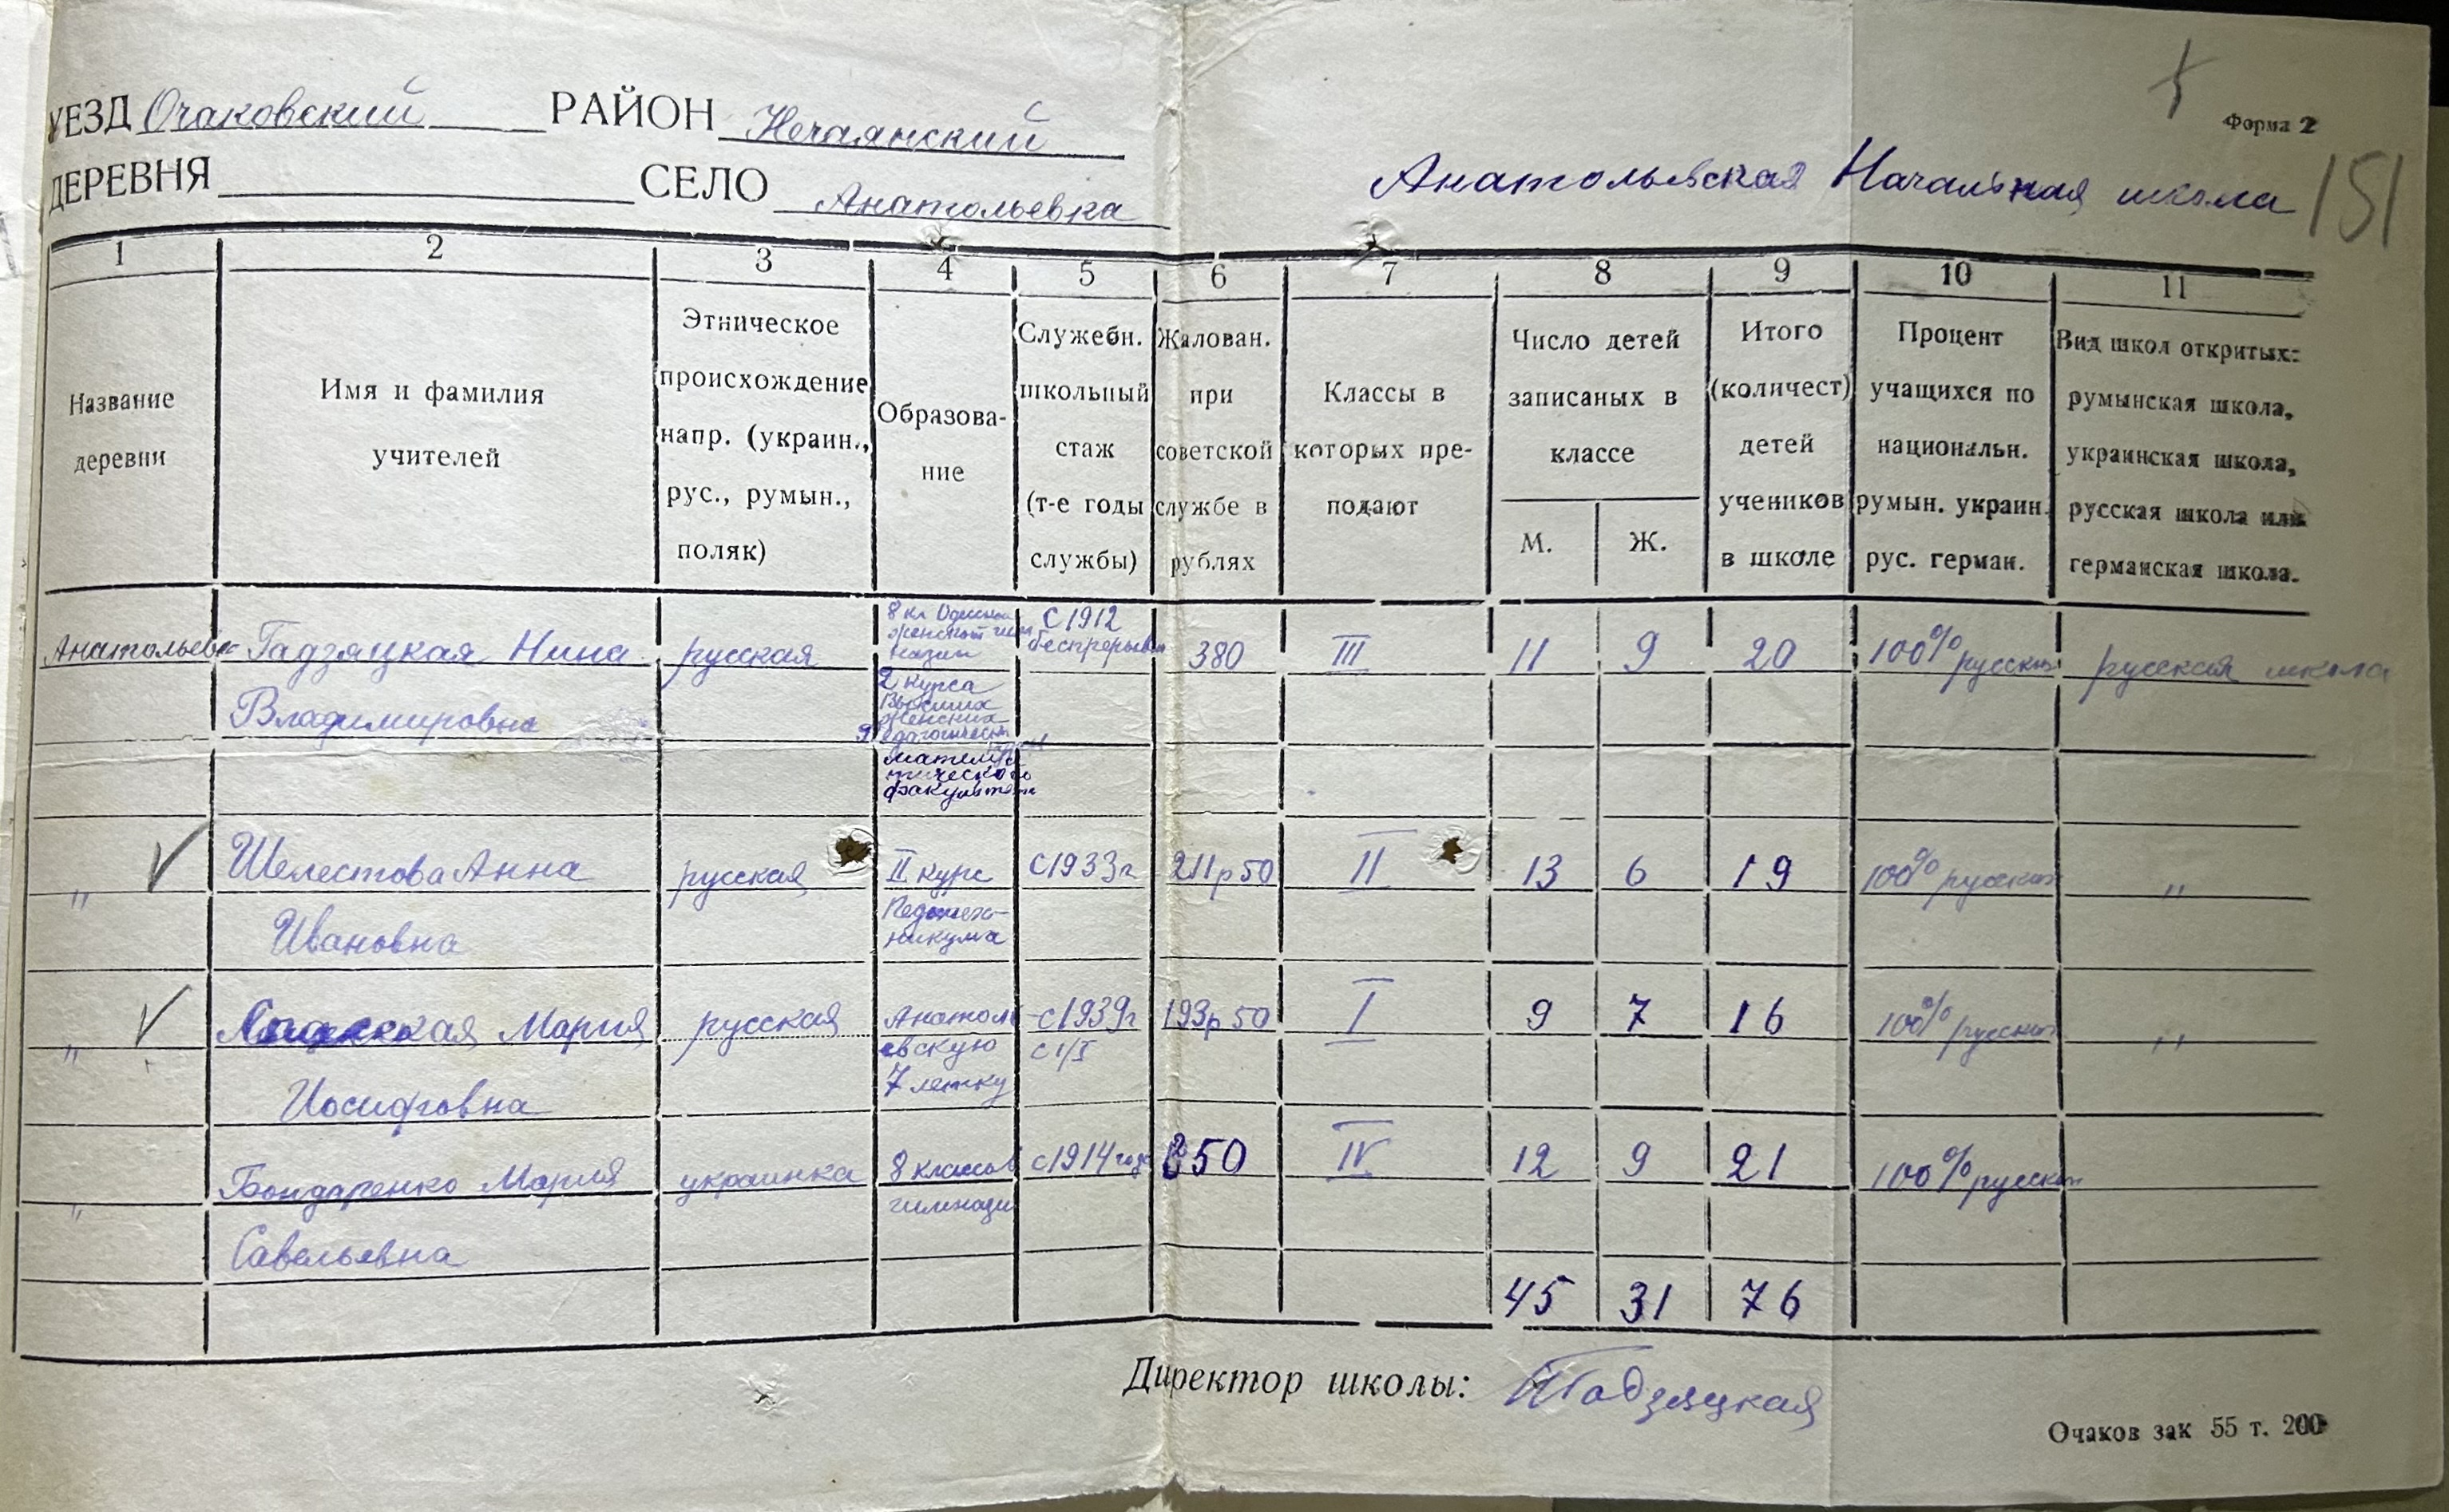 Форма 2
УЕЗД Очаковский РАЙОН Нечаянский
ДЕРЕВНЯ СЕЛО Анатольевка
Анатольевская Начальная школа 151
1 2 3 4 5 6 7 8 9 10 11
Название деревни
Имя и фамилия учителей
Этническое происхождение напр. (украин., рус., румын., поляк)
Образова-ние
Служебн. школьный стаж (т-е годы службы)
Жалован. при советской службе в рублях
Классы в которых пре-подают
Число детей записаных в классе
М. Ж.
Итого (количест) детей учеников в школе
Процент учащихся по национальн. румын. украин. рус. герман.
Вид школ откритых: румынская школа, украинская школа, русская школа или германская школа.
Анатольевк Гадзяцкая Нина Владимировна русская 8 кл Одесской женской гимназии 2 курса Высших женских педагогических курсов математического факультета С 1912 беспрерывно 380 III 11 9 20 100% русских русская школа
" Шелестова Анна Ивановна русская II курс Педтех-никума С 1933г 211р50 II 13 6 19 100% русских "
" Мария Иосифовна русская Анатольевскую 7 летку с 1939г с 1/I 193р50 I 9 7 16 100% русских "
" Бондаренко Мария Савельевна украинка 8 классов гимнази с 1914 года 50 IV 12 9 21 100% русских
45 31 76
Директор школы: НГадзяцкая
Очаков зак 55 т. 200